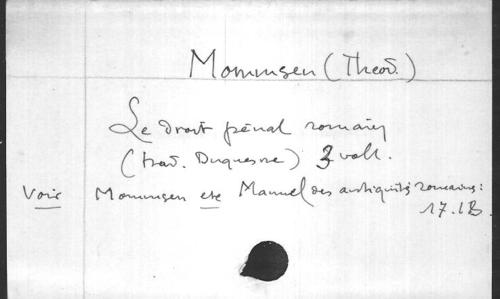 Mommsen (Theod.)
Le droit pénal romain
(trad. Duquesne) 3 voll.
Voir Mommsen etc Manuel des antiquités romaines :
17.1B.